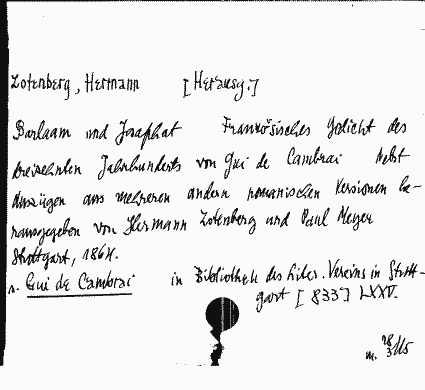 Zotenberg, Hermann [Herausg.]
Barlaam und Josaphat Französisches Gedicht des
dreizehnten Jahrhunderts von Gui de Cambrai nebst
Auszügen aus mehreren andern romanischen Versionen he-
rausgegeben von Hermann Zotenberg und Paul Meyer
Stuttgart, 1864.
s. Gui de Cambrai in Bibliothek des Liter. Vereins in Stutt-
gart [833] LXXV.